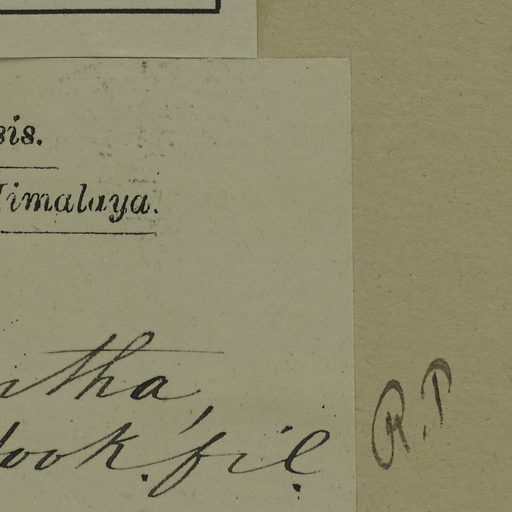 sis.
Himalaya.
ntha,
Hook. fil.
R.P